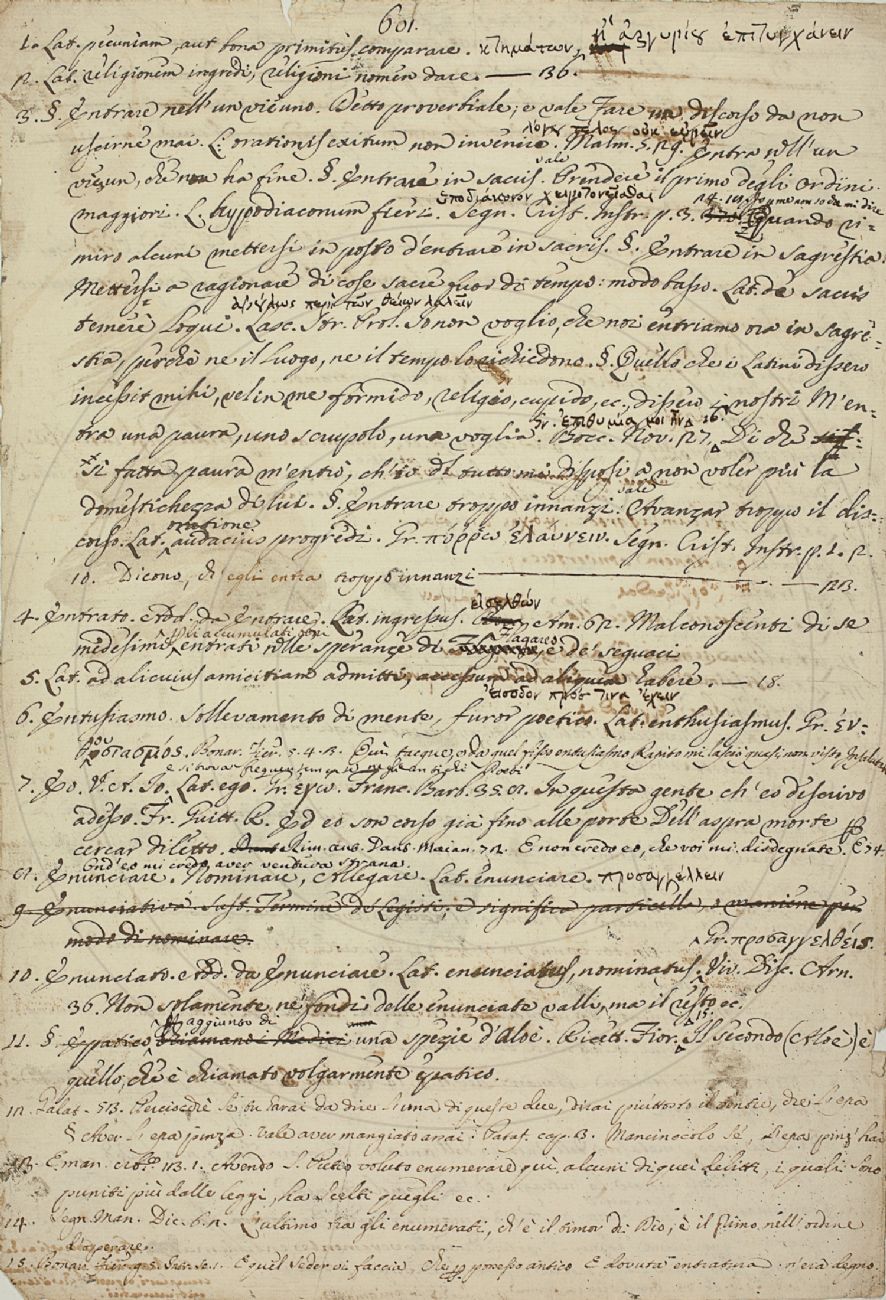 601.
1. Lat. pecuniam, aut bona primitus comparare. κτημάτων, ἢ ἀργυρίου ἐπιτυγχάνειν
2. Lat. religionem ingredi, religioni nomen dare. — 136.
3. §. Entrare nell'un vie uno. Detto proverbiale; e vale Fare un discorso da non
uscirne mai. L. orationis exitum non invenire. λόγου τέλος οὐκ εὑρεῖν Malm. 5. 29. Entra nell'un
vie un, che non ha fine. §. Entrare in sacris. vale Prendere il primo degli Ordini
maggiori. L. hypodiaconum fieri. ὑποδιάκονον χειροτονεῖσθαι Segn. Crist. Instr. p. 3. Quando ri-
miro alcuni mettersi in posto d'entrare in sacris. §. Entrare in Sagrestia.
Mettersi a ragionare di cose sacre fuor di tempo: modo basso. Lat. de sacris
temere loqui. περὶ τῶν θείων λαλεῖν Lasc. Str. Prol. Io non voglio, che noi entriamo ora in sagre-
stia, perchè ne il luogo, ne il tempo lo richiedono. §. Quello che i Latini dissero
incessit mihi, vel in me formido, religio, cupido, ec., dissero i nostri M'en-
tra una paura, uno scrupolo, una voglia. Bocc. Nov. 27. 16. Di che
sì fatta paura m'entrò, ch'io del tutto mi disposi a non voler più la
domestichezza di lui. §. Entrare troppo innanzi: vale Avanzar troppo il dis-
corso. Lat. oratione audacius progredi. Gr. πόρρω ἐλαύνειν. Segn. Crist. Instr. p. 1. 2.
10. Dicono, ch'egli entra troppo innanzi — 123.
4. Entrato. add. da Entrare. Lat. ingressus. εἰσελθών Am. 62. Mal conoscenti di se
medesimi, entrati nelle speranze di e de' seguaci
5. Lat. ad alicuius amicitiam admitti, accessum ad aliquem habere. — 18.
εἴσοδον πρός τινα ἔχειν
6. Entusiasmo. Sollevamento di mente, furor poetico. Lat. enthusiasmus. Gr. ἐν-
θουσιασμός. Bonar. Fier. 5. 4. 3. Qui tacque, e da quel fisso entusiasmo Rapito mi lasciò quasi non visto
e si trova frequentem. negli antichi Poeti
7. Eo. V. A. Io. Lat. ego. Gr. ἐγω. Franc. Barb. 35. 01. In questa gente ch'eo descrivo
adesso. Fr. Guitt. R. Ed eo son corso già fino alle porte Dell'aspra morte
cercar diletto. Rim. ant. Dant. Maian. 72. E non credo eo, che voi mi disdegnate. E 74.
Ond'eo mi credo aver vendiva strana.
8. Enunciare. Nominare, Allegare. Lat. enunciare. προσαγγέλλειν
9. Enunciativa. Sust. Termine de' Legisti, e significa particella, o maniera per
modo di nominare.
Gr. προσαγγελθείς.
10. Enunciato. add. da Enunciare. Lat. enunciatus, nominatus. Viv. Disc. Arn.
36. Non solamente ne' fondi delle enunciate valli, ma il resto ec.
11. §. Epatico aggiunto di una spezie d'Aloè. Ricett. Fior. 15. Il secondo (Aloè) è
quello, che è chiamato volgarmente epatico.
12. Galat. 53. Perciocchè se tu sarai da dire l'una di queste due, dirai piuttosto il ventre, che l'epa
§ Aver l'epa pinza. vale aver mangiato assai. Pataf. cap. 3. Mancinocolo sè, l'epa pinz' hai
13. E man. 113. 1. Avendo S. Pietro voluto enumerare qui alcuni di quei delitti, i quali sono
puniti più dalle leggi, ha scelti quegli ec.
14. Segn. Man. Dic. 6. 2. L'ultimo tra gli enumerati, ch'è il timor di Dio, è il primo nell'ordine
d'operare.
15. Bonar. Fier. g. 5. E quel seder di faccia, Che possesso antico E dovuta entratura n'era degno.